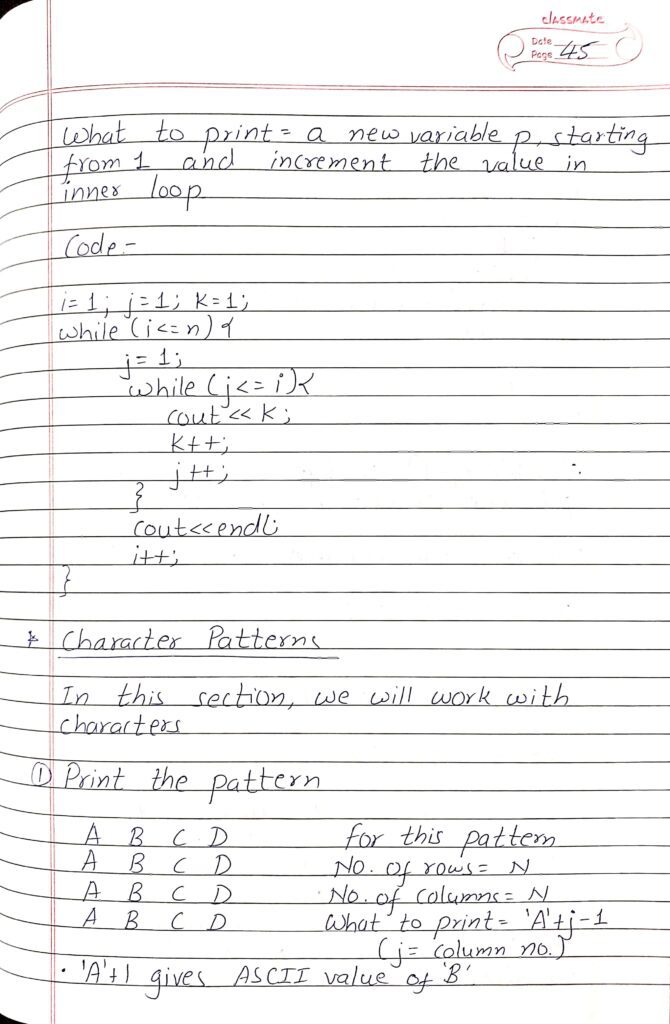 classmate
Date
Page 45
What to print = a new variable p, starting
from 1 and increment the value in
inner loop.
Code:-
i=1; j=1; k=1;
while (i<=n) {
j=1;
while (j<=i){
cout << k;
k++;
j++;
}
cout<<endl;
i++;
}
* Character Patterns
In this section, we will work with
characters
① Print the pattern
A B C D for this pattern
A B C D NO. of rows= N
A B C D No. of columns= N
A B C D What to print= 'A'+j-1
(j= column no.)
• 'A'+1 gives ASCII value of 'B'.